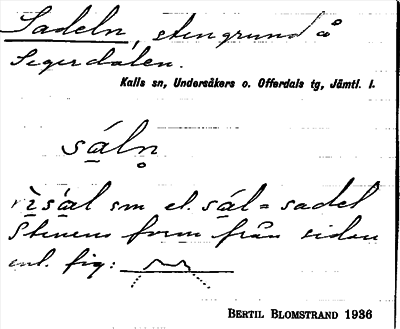 Sadeln, stengrund å
Segerdalen.
Kalls sn, Undersåkers o. Offerdals tg, Jämtl. l.
sáln̥
sál sm el. sál = sadel
Stenens form från sidan
enl. fig:
BERTIL BLOMSTRAND 1936